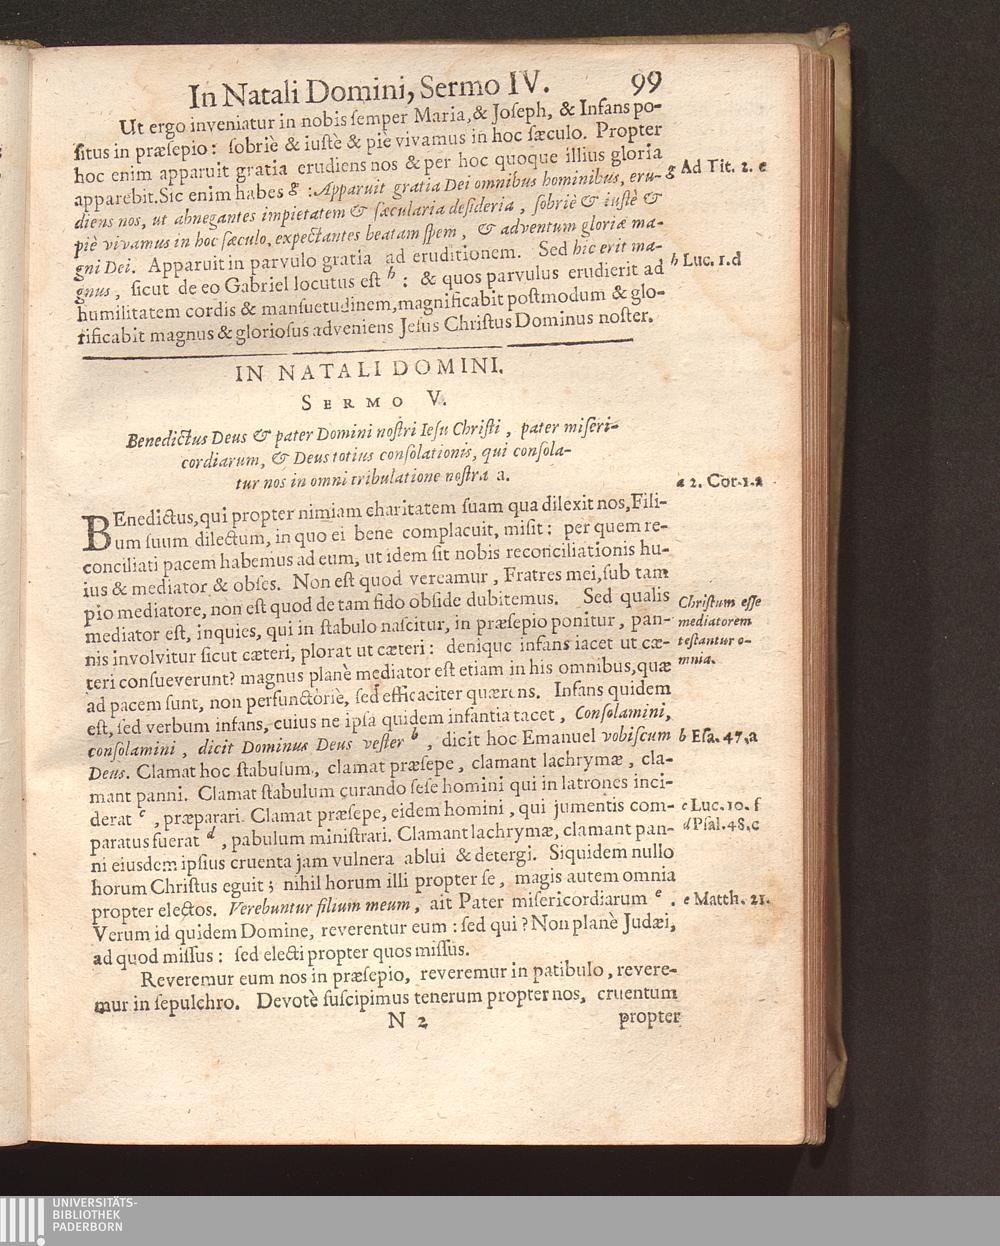 In Natali Domini, Sermo IV. 99
Ut ergo inveniatur in nobis ſemper Maria, & Joſeph, & Infans po-
ſitus in præſepio: ſobriè & iuſtè & piè vivamus in hoc ſæculo. Propter
hoc enim apparuit gratia erudiens nos & per hoc quoque illius gloria
apparebit. Sic enim habes g : Apparuit gratia Dei omnibus hominibus, eru-
g Ad Tit. 2. c
diens nos, ut abnegantes impietatem & ſæcularia deſideria, ſobriè & iuſtè &
piè vivamus in hoc ſæculo, expectantes beatam ſpem, & adventum gloriæ ma-
gni Dei. Apparuit in parvulo gratia ad eruditionem. Sed hic erit ma-
gnus, ſicut de eo Gabriel locutus eſt h : & quos parvulus erudierit ad
h Luc. 1. d
humilitatem cordis & manſuetudinem, magnificabit poſtmodum & glo-
rificabit magnus & glorioſus adveniens Jeſus Chriſtus Dominus noſter.
IN NATALI DOMINI.
SERMO V.
Benedictus Deus & pater Domini noſtri Ieſu Chriſti, pater miſeri-
cordiarum, & Deus totius conſolationis, qui conſola-
tur nos in omni tribulatione noſtra a.
a 2. Cor. 1. a
BEnedictus, qui propter nimiam charitatem ſuam qua dilexit nos, Fili-
um ſuum dilectum, in quo ei bene complacuit, miſit: per quem re-
conciliati pacem habemus ad eum, ut idem ſit nobis reconciliationis hu-
ius & mediator & obſes. Non eſt quod vereamur, Fratres mei, ſub tam
pio mediatore, non eſt quod de tam fido obſide dubitemus. Sed qualis
mediator eſt, inquies, qui in ſtabulo naſcitur, in præſepio ponitur, pan-
nis involvitur ſicut cæteri, plorat ut cæteri: denique infans iacet ut cæ-
teri conſueverunt? magnus planè mediator eſt etiam in his omnibus, quæ
Chriſtum eſſe
mediatorem
teſtantur o-
mnia.
ad pacem ſunt, non perfunctoriè, ſed efficaciter quærens. Infans quidem
eſt, ſed verbum infans, cuius ne ipſa quidem infantia tacet, Conſolamini,
conſolamini, dicit Dominus Deus veſter b, dicit hoc Emanuel vobiſcum
b Eſa. 47. a
Deus. Clamat hoc ſtabulum, clamat præſepe, clamant lachrymæ, cla-
mant panni. Clamat ſtabulum curando ſeſe homini qui in latrones inci-
derat c, præparari. Clamat præſepe, eidem homini, qui jumentis com-
c Luc. 10. f
paratus fuerat d, pabulum miniſtrari. Clamant lachrymæ, clamant pan-
d Pſal. 48. c
ni eiusdem ipſius cruenta jam vulnera ablui & detergi. Siquidem nullo
horum Chriſtus eguit; nihil horum illi propter ſe, magis autem omnia
propter electos. Verebuntur filium meum, ait Pater miſericordiarum e.
e Matth. 21.
Verum id quidem Domine, reverentur eum: ſed qui? Non planè Judæi,
ad quod miſſus: ſed electi propter quos miſſus.
Reveremur eum nos in præſepio, reveremur in patibulo, revere-
mur in ſepulchro. Devotè ſuſcipimus tenerum propter nos, cruentum
N 2 propter
UNIVERSITÄTS-
BIBLIOTHEK
PADERBORN